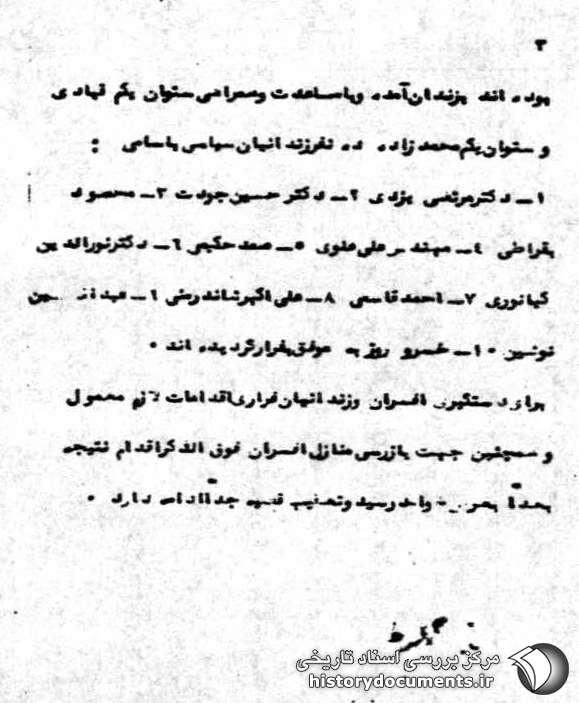 ۳
بوده اند بزندان آمده وبامساعدت وهمراهی ستوان یکم قبادی
و ستوان یکم محمدزاده ده نفرزندانیان سیاسی باسامی :
۱ــ دکترمرتضی یزدی ۲ــ دکتر حسین جودت ۳ــ محمود
بقراطی ۴ــ مهندس علی علوی ۵ــ صمد حکیمی ۶ــ دکترنورالدین
کیانوری ۷ــ احمد قاسمی ۸ــ علی اکبرشاندرمنی ۹ــ
نوشین ۱۰ــ خسرو روزبه موفق بفرارگردیده اند ۰
برای دستگیری افسران وزندانیان فراری اقدامات لازم معمول
و همچنین جهت بازرسی منازل افسران فوق الذکر اقدام نتیجه
بعداً واحد رسید وتعقیب قضیه جداً ادامه دارد ۰
مرکز بررسی اسناد تاریخی
historydocuments.ir